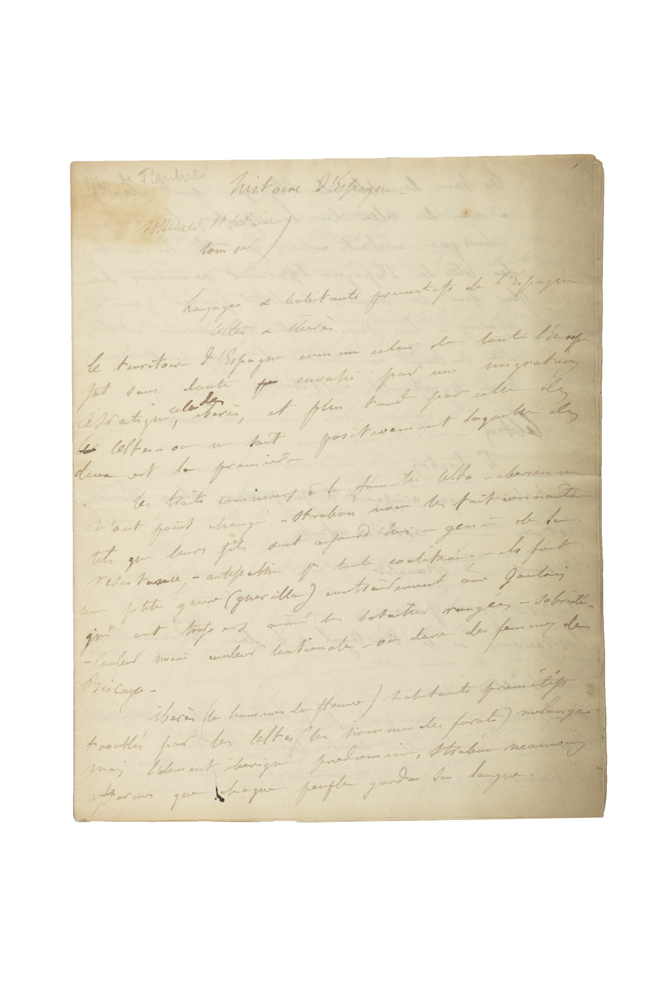 de Flaubert
histoire d'Espagne
tom 1er
Langages & habitants primitifs de l'Espagne
Celtes & Ibères.
le territoire d'Espagne comme celui de tout l'Europe
fut sans doute envahi par une migration
asiatique, celle des ibères, et plus tard par celle des
Celtes - on ne sait positivement laquelle des
deux est la première
les traits communs à la famille Celto-iberienne
n'ont point changé. - Strabon nous les fait connaitre
tels que leurs fils sont aujourd'hui - génie de la
résistance, - antipathie pr toute coalition - ils font
une petite guerre (guerilla) contrairement aux Gaulois
qui ont toujours aimé les batailles rangées - sobriété -
- couleur noire couleur nationale - vie dure des femmes de
Biscaye -
ibères (les hommes du fleuve) habitants primitifs
troublés par les Celtes (les hommes des forets) mélange -
mais l'élément iberique predomine, Strabon neanmoins
que chaque peuple garda sa langue.